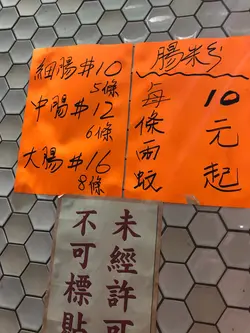 細腸$10
5條
中腸$12
6條
大腸$16
8條
腸粉
10元起
每條兩蚊
未經許可
不可標貼